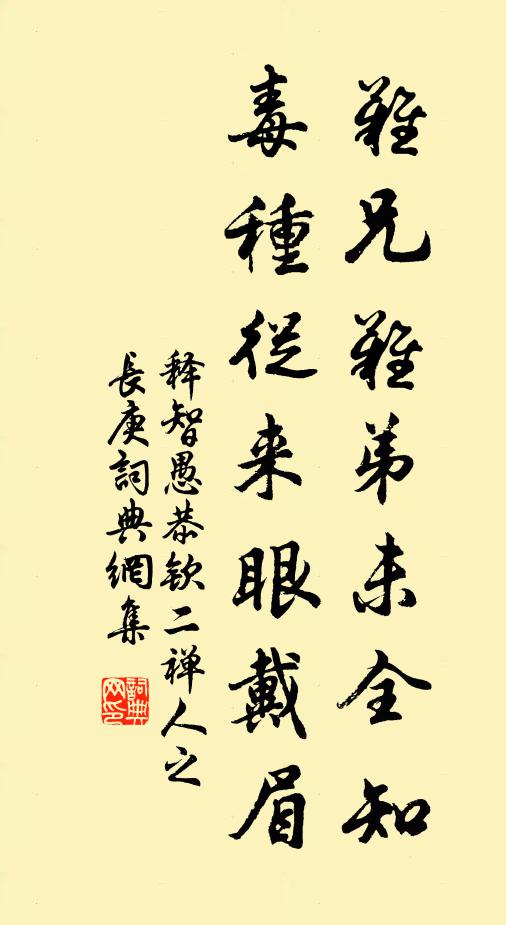 難兄難弟未全知
毒種從来眼戴眉
释智愚恭钦二禅人之
長庚詞典網集
詞典
网印